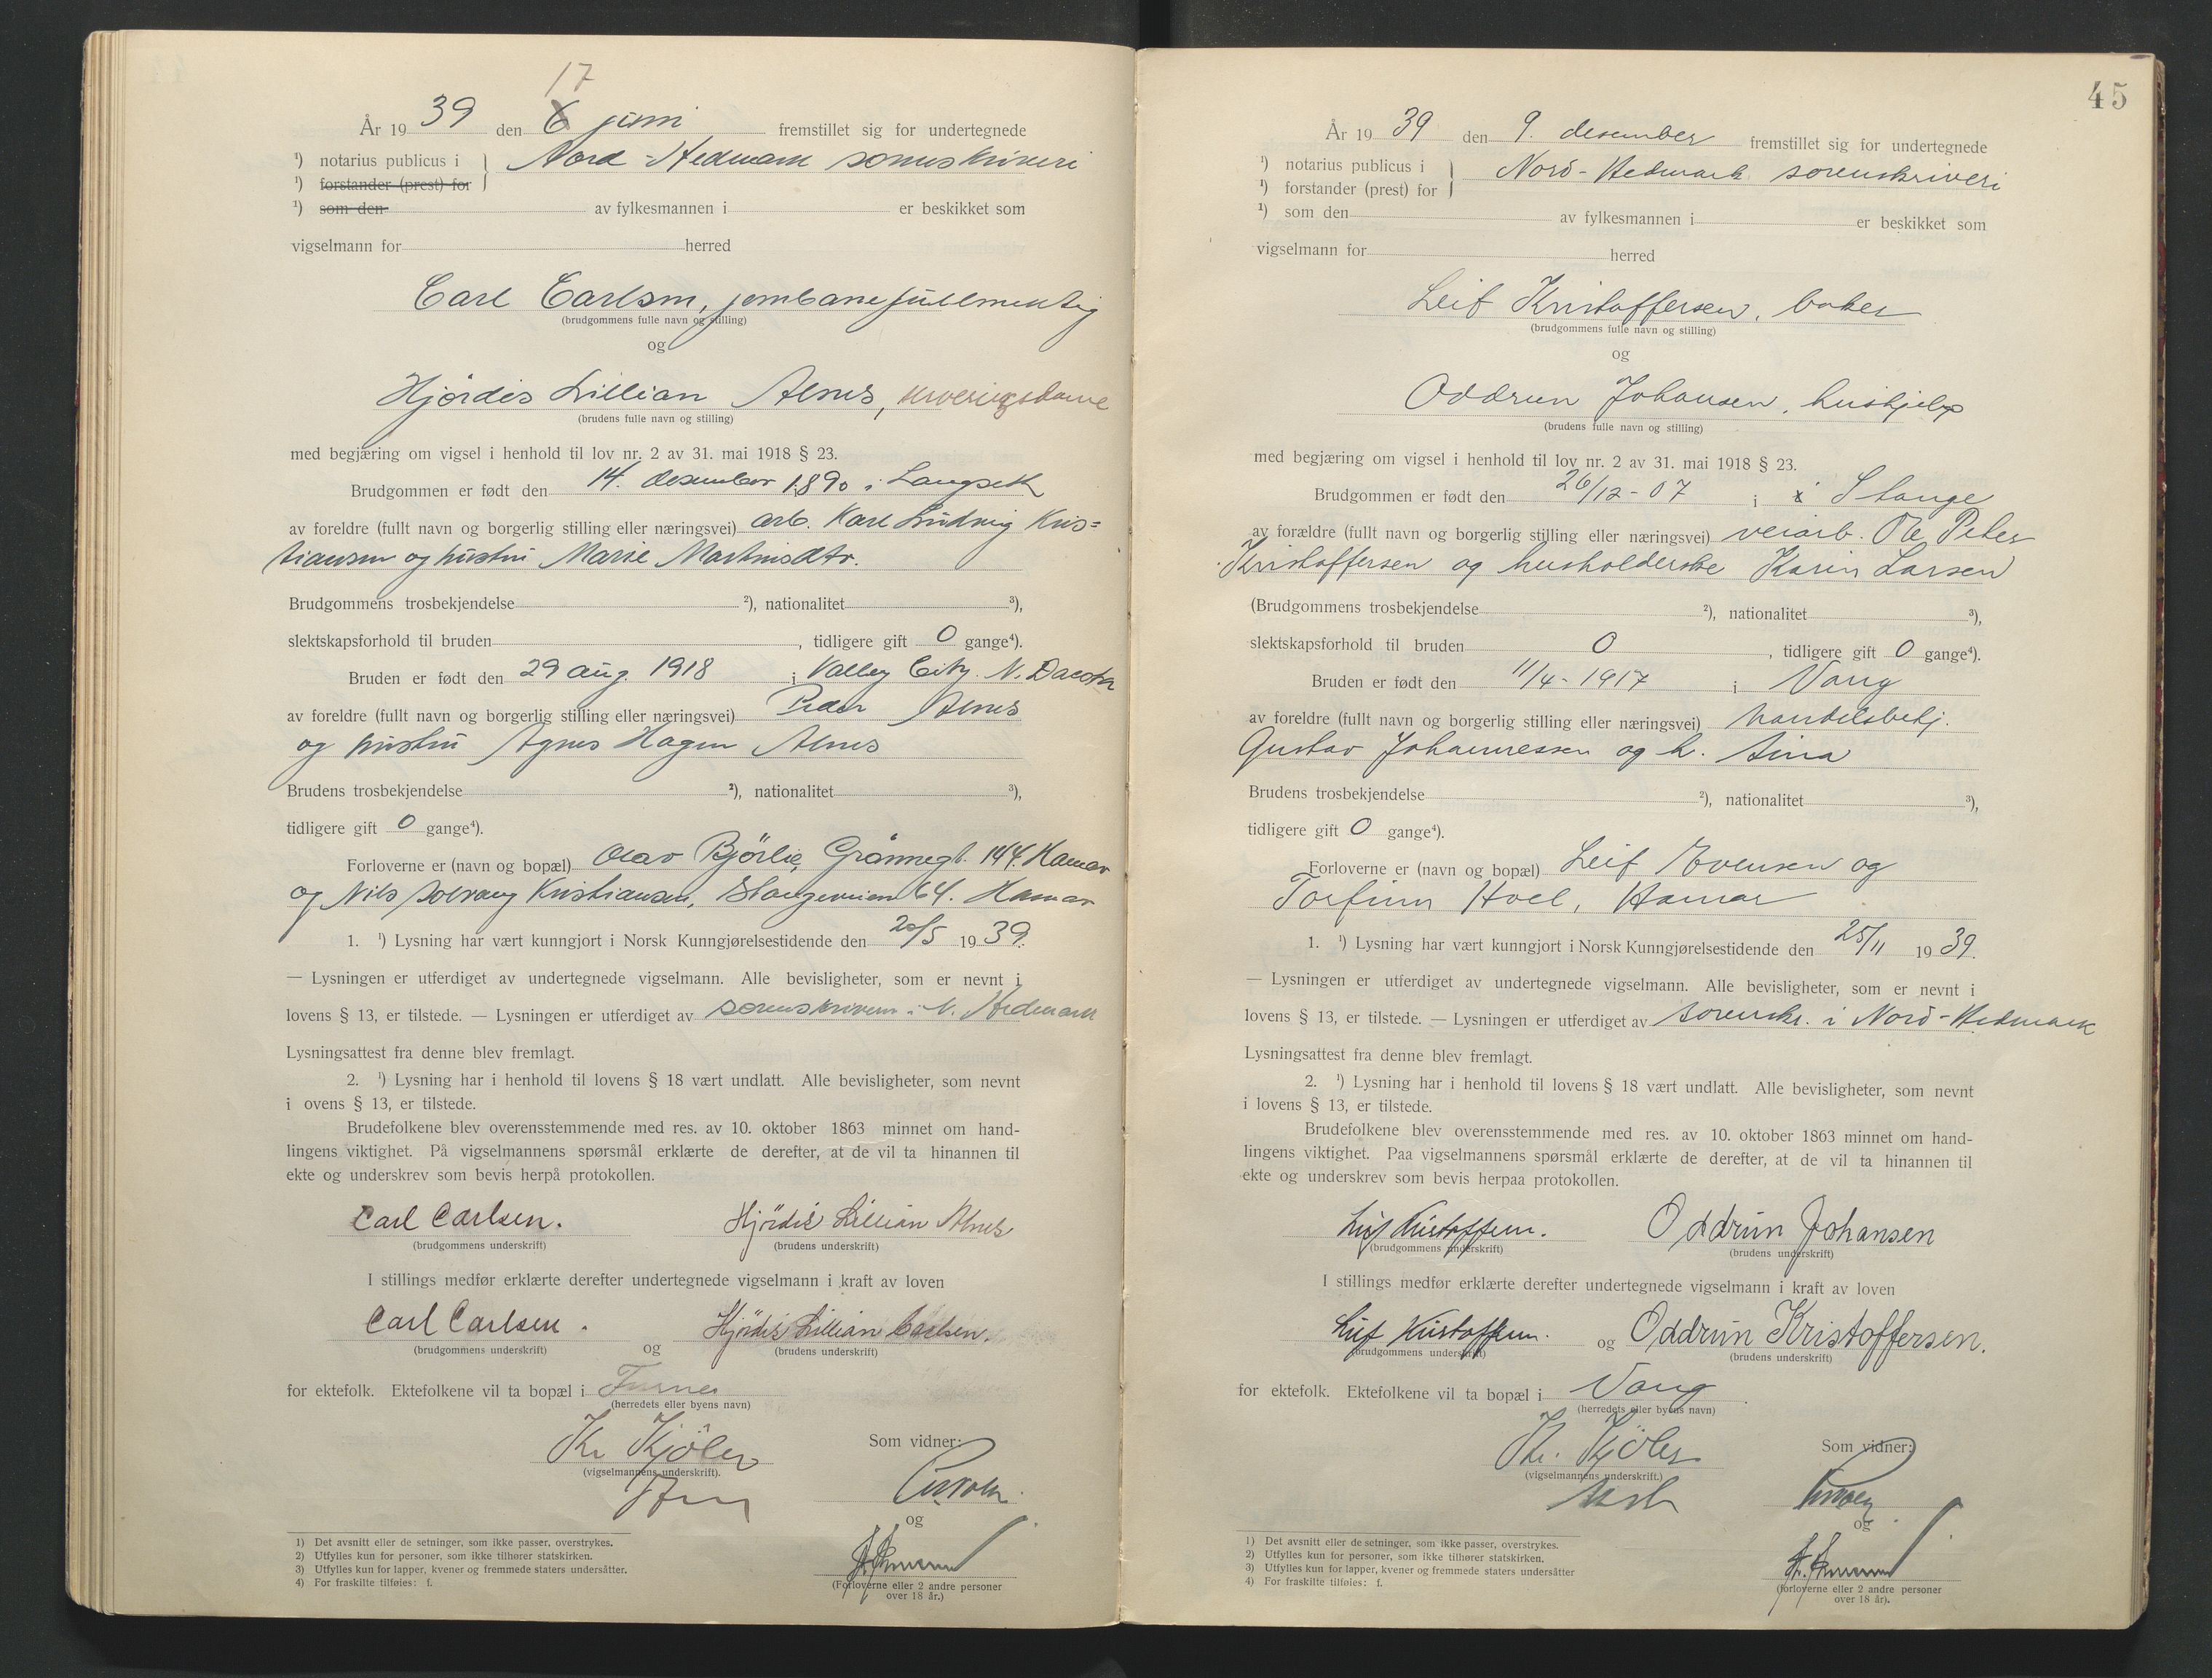 17
År 19 39 den 6 juni fremstillet sig for undertegnede
¹) notarius publicus i } Nord-Hedmark sorenskriveri
¹) forstander (prest) for
¹) som den av fylkesmannen i er beskikket som
vigselmann for herred
Carl Carlsen, jernbanefullmektig
(brudgommens fulle navn og stilling)
og
Hjördis Lillian Alnes, serveringsdame
(brudens fulle navn og stilling)
med begjæring om vigsel i henhold til lov nr. 2 av 31. mai 1918 § 23.
Brudgommen er født den 14. desember 1890 i Langseth
av foreldre (fullt navn og borgerlig stilling eller næringsvei) arb. Karl Ludvig Kris=
tiansen og hustru Marie Martinsdtr.
Brudgommens trosbekjendelse ²), nationalitet ³),
slektskapsforhold til bruden , tidligere gift 0 gange⁴).
Bruden er født den 29 aug. 1918 i Valley City. N. Dacota
av foreldre (fullt navn og borgerlig stilling eller næringsvei) Peder Alnes
og hustru Agnes Hagen Alnes
Brudens trosbekjendelse ²), nationalitet ³),
tidligere gift 0 gange⁴).
Forloverne er (navn og bopæl) Olav Bjørlie, Grønnegt. 144. Hamar
og Nils Solvang Kristiansen, Stangeveien 64. Hamar
1. ¹) Lysning har vært kunngjort i Norsk Kunngjørelsestidende den 20/5 1939.
— Lysningen er utferdiget av undertegnede vigselmann. Alle bevisligheter, som er nevnt i
lovens § 13, er tilstede. — Lysningen er utferdiget av sorenskriveren i N. Hedmark
Lysningsattest fra denne blev fremlagt.
2. ¹) Lysning har i henhold til lovens § 18 vært undlatt. Alle bevisligheter, som nevnt
i ovens § 13, er tilstede.
Brudefolkene blev overensstemmende med res. av 10. oktober 1863 minnet om hand-
lingens viktighet. På vigselmannens spørsmål erklærte de derefter, at de vil ta hinannen til
ekte og underskrev som bevis herpå protokollen.
Carl Carlsen. Hjördis Lillian Alnes
(brudgommens underskrift) (brudens underskrift)
I stillings medfør erklærte derefter undertegnede vigselmann i kraft av loven
Carl Carlsen. og Hjördis Lillian Carlsen.
(brudgommens underskrift) (brudens underskrift)
for ektefolk. Ektefolkene vil ta bopæl i Furnes
(herredets eller byens navn)
Kr Kjölen Som vidner:
(vigselmannens underskrift).
og
(Forloverne eller 2 andre personer
over 18 år.)
1) Det avsnitt eller de setninger, som ikke passer, overstrykes.
2) Utfylles kun for personer, som ikke tilhører statskirken.
3) Utfylles kun for lapper, kvener og fremmede staters undersåtter.
4) For fraskilte tilføies: f.
45
År 19 39 den 9. desember fremstillet sig for undertegnede
¹) notarius publicus i } Nord-Hedmark sorenskriveri
¹) forstander (prest) for
¹) som den av fylkesmannen i er beskikket som
vigselmann for herred
Leif Kristoffersen, baker
(brudgommens fulle navn og stilling)
og
Oddrun Johansen, hushjelp
(brudens fulle navn og stilling)
med begjæring om vigsel i henhold til lov nr. 2 av 31. mai 1918 § 23.
Brudgommen er født den 26/12-07 i i Stange
av forældre (fullt navn og borgerlig stilling eller næringsvei) veiarb. Ole Peter
Kristoffersen og husholderske Karin Larsen
(Brudgommens trosbekjendelse ²), nationalitet ³),
slektskapsforhold til bruden 0 , tidligere gift 0 gange⁴).
Bruden er født den 11/4-1917 i Vang
av foreldre (fullt navn og borgerlig stilling eller næringsvei) handelsbetj.
Gustav Johannessen og h. Aina
Brudens trosbekjendelse ²), nationalitet ³),
tidligere gift 0 gange⁴).
Forloverne er (navn og bopæl) Leif Evensen og
Torfinn Hoel, Hamar
1. ¹) Lysning har vært kunngjort i Norsk Kunngjørelsestidende den 25/11 1939.
— Lysningen er utferdiget av undertegnede vigselmann. Alle bevisligheter, som er nevnt i
lovens § 13, er tilstede. — Lysningen er utferdiget av sorenskr. i Nord-Hedmark
Lysningsattest fra denne blev fremlagt.
2. ¹) Lysning har i henhold til lovens § 18 vært undlatt. Alle bevisligheter, som nevnt
i lovens § 13, er tilstede.
Brudefolkene blev overensstemmende med res. av 10. oktober 1863 minnet om hand-
lingens viktighet. Paa vigselmannens spørsmål erklærte de derefter, at de vil ta hinannen til
ekte og underskrev som bevis herpaa protokollen.
Leif Kristoffersen. Oddrun Johansen
(brudgommens underskrift) (brudens underskrift)
I stillings medfør erklærte derefter undertegnede vigselmann i kraft av loven
Leif Kristoffersen. og Oddrun Kristoffersen.
(brudgommens underskrift) (brudens underskrift)
for ektefolk. Ektefolkene vil ta bopæl i Vang
(herredets eller byens navn)
Kr. Kjölen Som vidner:
(vigselmannens underskrift.)
og
(forloverne eller 2 andre personer
over 18 år).
1) Det avsnitt eller de setninger, som ikke passer, overstrykes.
2) Utfylles kun for personer, som ikke tilhører statskirken.
3) Utfylles kun for lapper, kvener og fremmede staters undersåtter
4) For fraskilte tilføies: f.